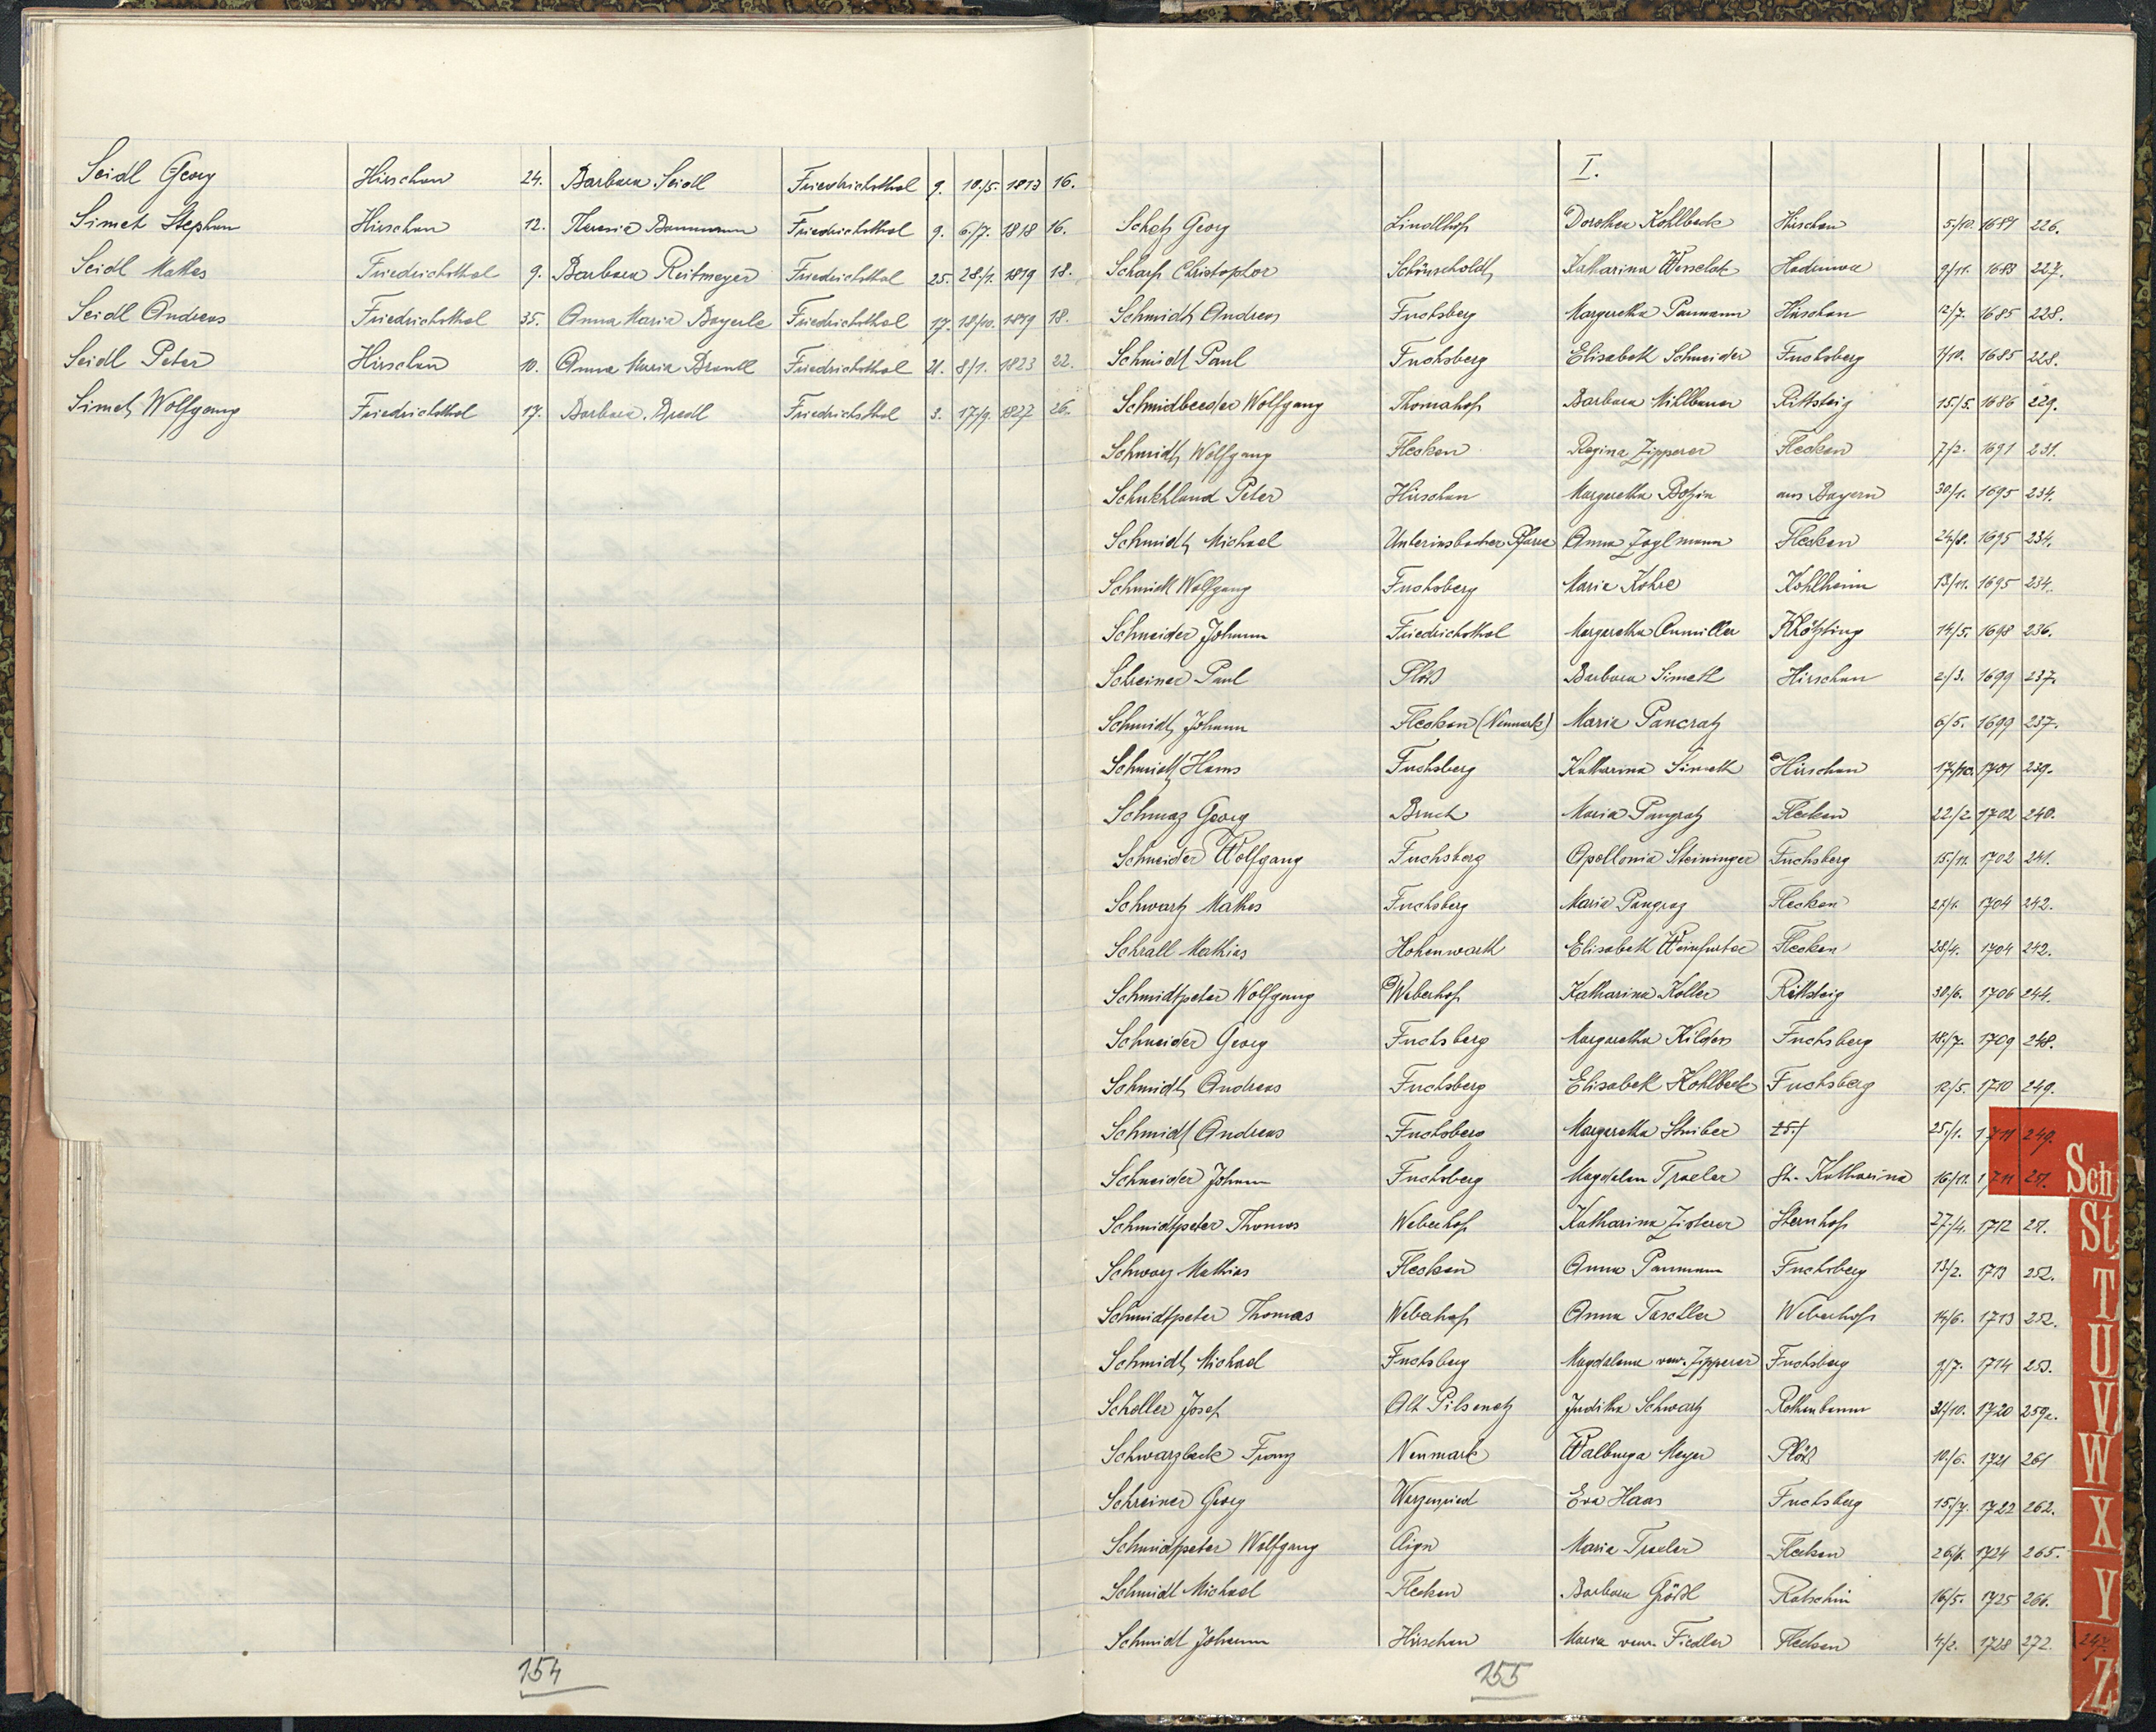 Seidl Georg Hirschau 24. Barbara Seidl Friedrichsthal 9. 10./5. 1813 16.
Simet Stephan Hirschau 12. Theresia Baumann Friedrichsthal 9. 6./7. 1818 16.
Seidl Mathes Friedrichsthal 9. Barbara Reitmeyer Friedrichsthal 25. 28./1. 1819 18.
Seidl Andreas Friedrichsthal 35. Anna Maria Bayerle Friedrichsthal 17. 18/10. 1819 18.
Seidl Peter Hirschau 10. Anna Maria Brandl Friedrichsthal 21. 8/1. 1823 22.
Simet Wolfgang Friedrichsthal 17. Barbara Bredl Friedrichsthal 3. 17/9. 1827 26.
154
I.
Georg Lindlhof Dorothea Kohlbeck Hirschau 5./10. 1681 226.
Scharf Christophor Katharina 9/11. 1683 227.
Schmidt Andreas Fuchsberg Margaretha Paumann Hirschau 12/7. 1685 228.
Schmidt Paul Fuchsberg Elisabeth Schneider Fuchsberg 1/10. 1685 228.
Wolfgang Thomahof Barbara Millbauer Rittsteig 15/5. 1686 229.
Schmidt Wolfgang Flecken Regina Zipperer Flecken 7/2. 1691 231.
Peter Hirschau Margaretha aus Bayern 30/1. 1695 234.
Schmidt Michael Pfarre Anna Zoglmann Flecken 24/8. 1695 234.
Schmidt Wolfgang Fuchsberg Maria Kohlheim 13/11. 1695 234.
Schneider Johann Friedrichsthal Margaretha Aumiller Kötzting 14/5. 1698 236.
Schreiner Paul Plöß Barbara Simeth Hirschau 2/3. 1699 237.
Schmidt Johann Flecken (Neumark) Maria Pancratz 6/5. 1699 237.
Schmidt Hans Fuchsberg Katharina Simeth Hirschau 17./10. 1701 239.
Georg Bruck Maria Pangratz Flecken 22./2. 1702 240.
Schneider Wolfgang Fuchsberg Apollonia Steininger Fuchsberg 15./11. 1702 241.
Schwartz Mathes Fuchsberg Maria Pangraz Flecken 1704 242.
Schrall Mathias Hohenwarth Elisabeth Weinfurter Flecken 28/4. 1704 242.
Schmidtpeter Wolfgang Weberhof Katharina Koller Rittsteig 30/6. 1706 244.
Schneider Georg Fuchsberg Margaretha Fuchsberg 18./7. 1709 248.
Schmidt Andreas Fuchsberg Elisabeth Kohlbeck Fuchsberg 12/5. 1710 249.
Schmidt Andreas Fuchsberg Margaretha Stuiber 25./1. 1711 249.
Schneider Johann Fuchsberg Magdalen St. Katharina 16/11. 1711 251. Sch
Schmidtpeter Thomas Weberhof Katharina Sternhof 27./4. 1712 251. St
Mathias Flecken Anna Paumann Fuchsberg 13/2. 1713 252. T
Schmidtpeter Thomas Weberhof Anna Weberhof 14/6. 1713 252. U
Schmidt Michael Fuchsberg Magdalena verw. Zipperer Fuchsberg 9/7. 1714 253.
Scholler Josef Alt Juditha Schwartz Rothenbaum 31/10. 1720 259a. V
Schwarzbeck Franz Neumark Walburga Meyer Plöß 10/6. 1721 261 W
Schreiner Georg Warzenried Eva Haas Fuchsberg 15/7. 1722 262. X
Schmidtpeter Wolfgang Aign Maria Flecken 1724 265.
Schmidt Michael Flecken Barbara Rotschin 16/5. 1725 266. Y
Schmidt Johann Hirschau Maria verw. Fiedler Flecken 4/2. 1728 272. 247.
Z
155